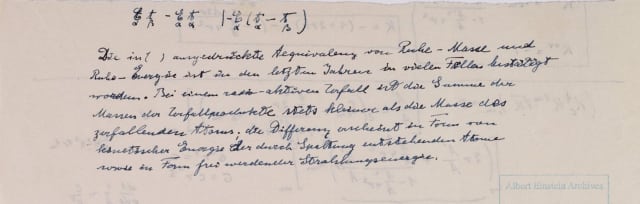 Die in ( ) ausgedrückte Aequivalenz von Ruhe-Masse und
Ruhe-Energie ist in den letzten Jahren in vielen Fällen bestätigt
worden. Bei einem radio-aktiven Zerfall ist die Summe der
Massen der Zerfallprodukte stets kleiner als die Masse des
zerfallenden Atoms, die Differenz erscheint in Form von
kinetischer Energie der durch Spaltung entstehenden Atome
sowie in Form frei werdender Strahlungsenergie.
Albert Einstein Archives